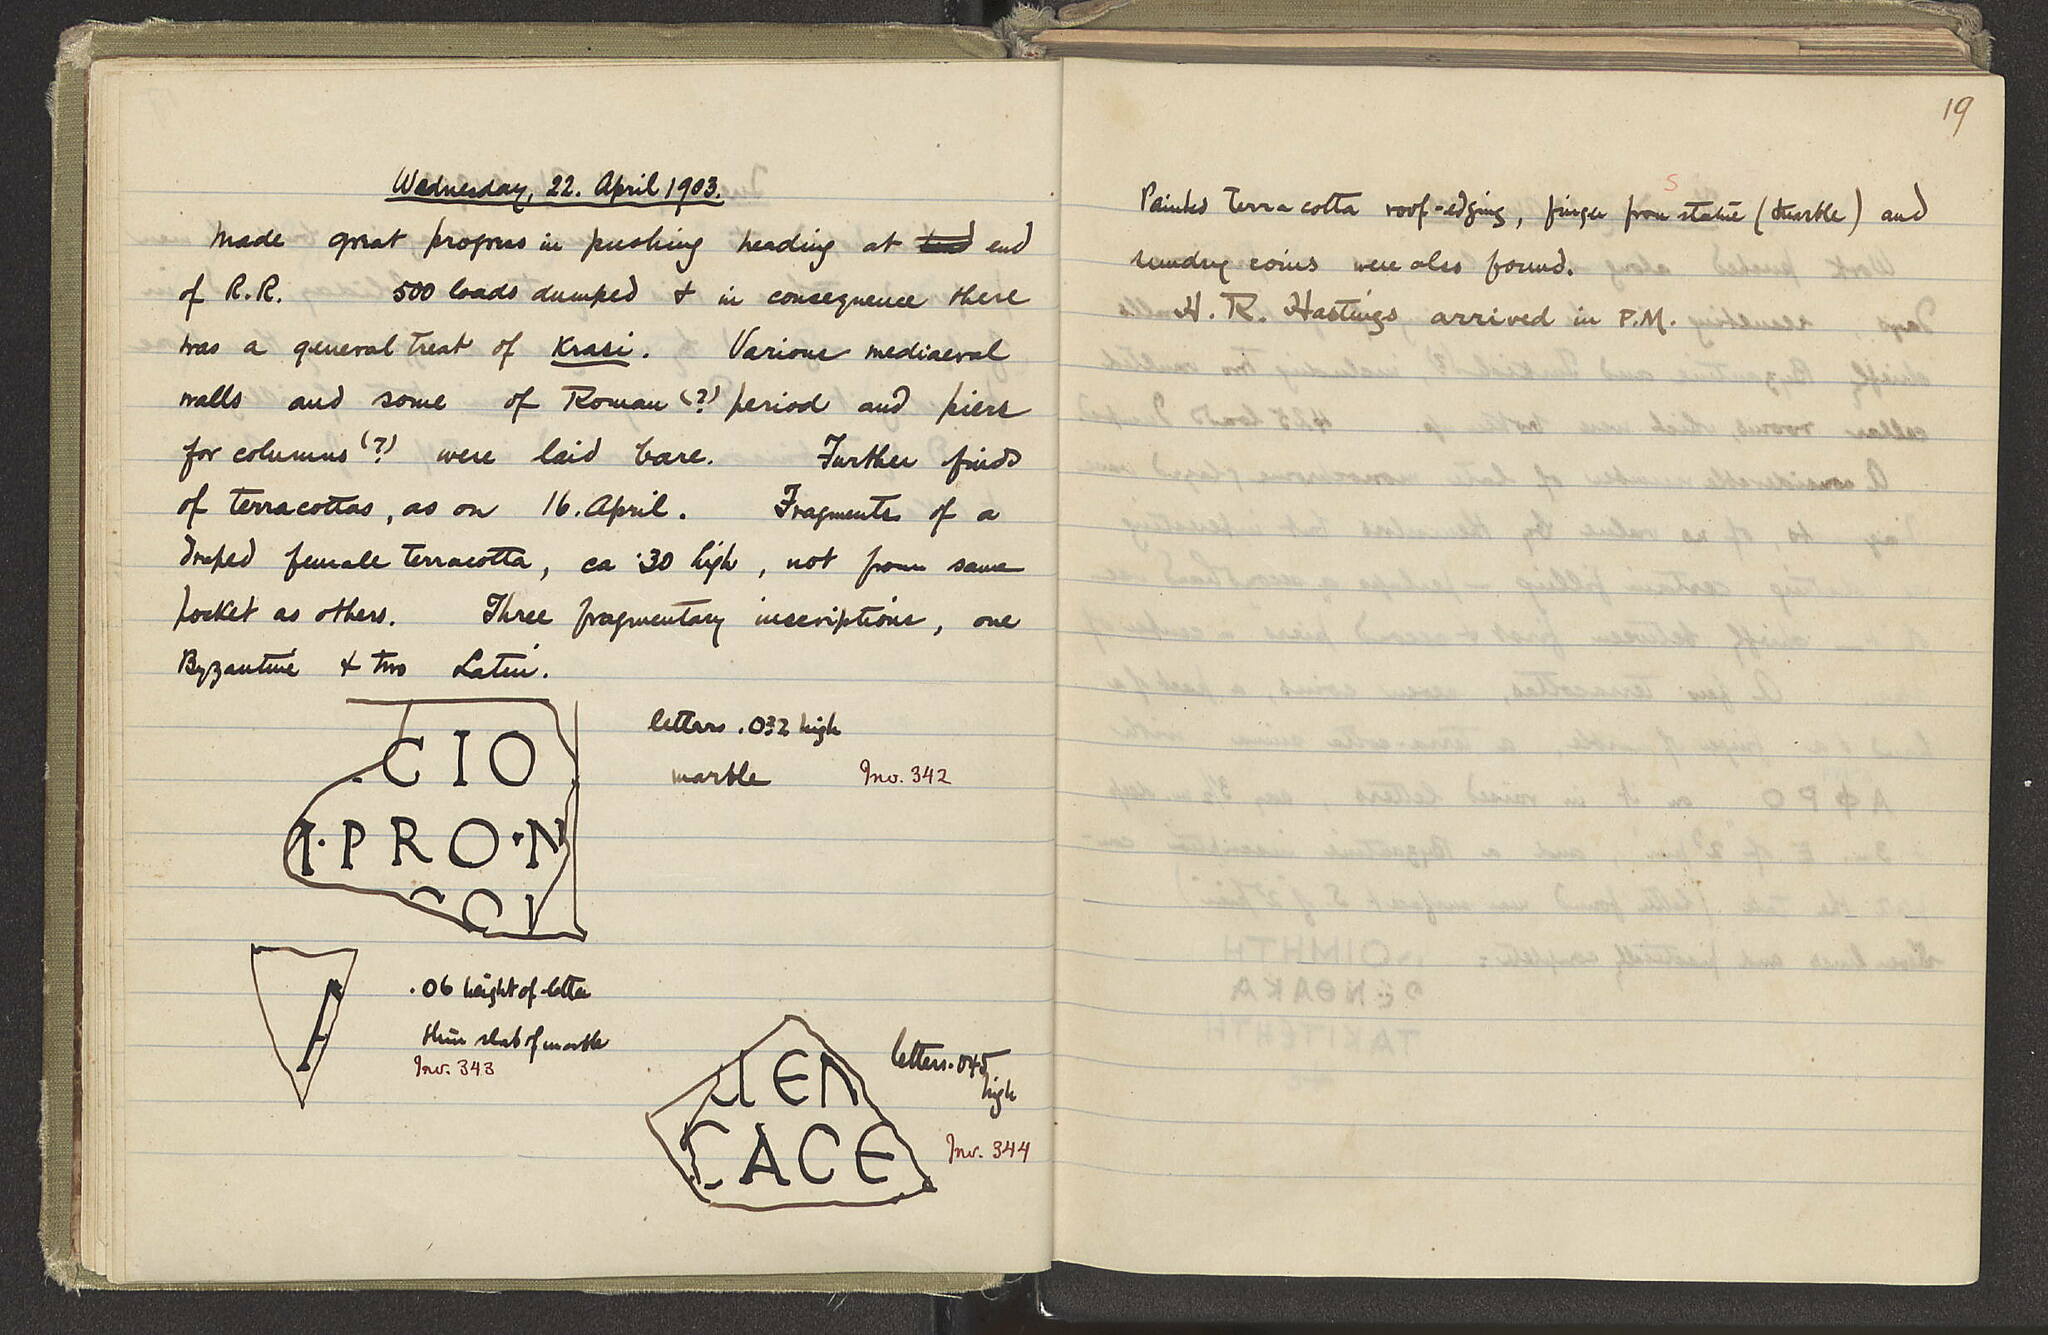 Wednesday, 22. April 1903.
Made great progress in pushing heading at end
of R.R. 500 loads dumped & in consequence there
was a general treat of Krasi. Various mediaeval
walls and some of Roman (?) period and piers
for columns (?) were laid bare. Further finds
of terracottas, as on 16. April. Fragments of a
draped female terracotta, ca .30 high, not from same
pocket as others. Three fragmentary inscriptions, one
Byzantine & two Latin.
CIO
I·PRO·N
letters .032 high
marble Inv. 342
.06 height of letter
thin slab of marble
Inv. 343
letters .045
high
CACE
Inv. 344
19
Painted terracotta roof-edging, finger from statue (marble) and
sundry coins were also found.
H. R. Hastings arrived in P.M.